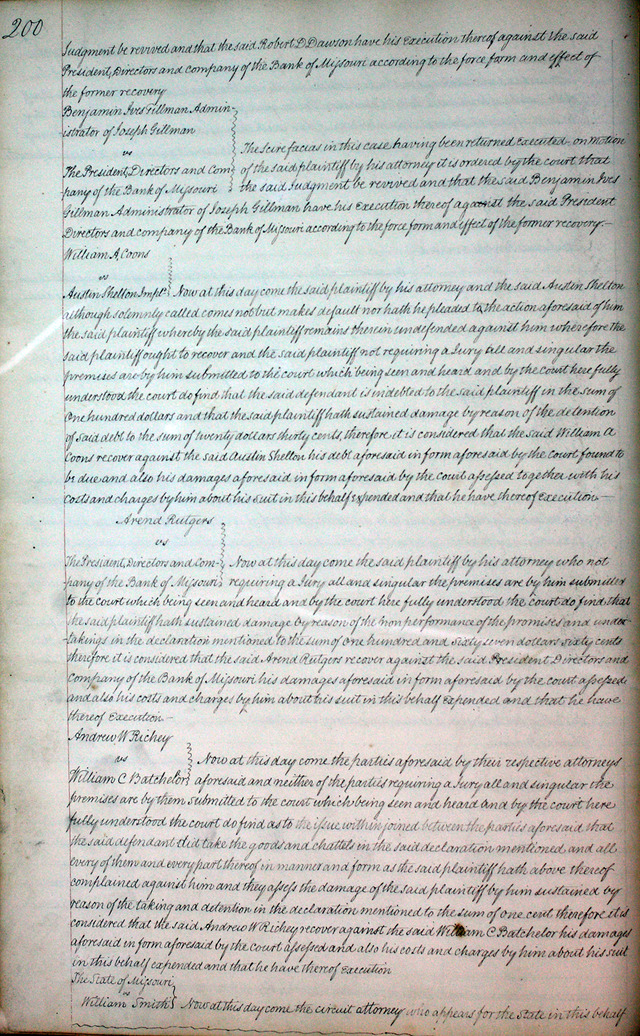 200
Judgment be revived and that the said Robert D Dawson have his Execution thereof against the said
President, Directors and company of the Bank of Missouri according to the force form and effect of
the former recovery
Benjamin Ives Gillman Admin-
istrator of Joseph Gillman
vs
The President, Directors and Com-
pany of the Bank of Missouri
The Scire facias in this case having been returned Executed - on motion
of the said plaintiff by his attorney it is ordered by the court that
the said Judgment be revived and that the said Benjamin Ives
Gillman Administrator of Joseph Gillman have his Execution thereof against the said President
Directors and company of the Bank of Missouri according to the force form and effect of the former recovery.-
William A Coons
vs
Austin Shelton Impld. Now at this day come the said plaintiff by his attorney and the said Austin Shelton
although solemnly called comes not but makes default nor hath he pleaded to the action aforesaid of him
the said plaintiff whereby the said plaintiff remains therein undefended against him wherefore the
said plaintiff ought to recover and the said plaintiff not requiring a Jury all and singular the
premises are by him submitted to the court which being seen and heard and by the court here fully
understood the court do find that the said defendant is indebted to the said plaintiff in the sum of
One hundred dollars and that the said plaintiff hath sustained damage by reason of the detention
of said debt to the sum of twenty dollars thirty cents, therefore it is considered that the said William A
Coons recover against the said Austin Shelton his debt aforesaid in form aforesaid by the Court found to
be due and also his damages aforesaid in form aforesaid by the court assessed together with his
costs and charges by him about his suit in this behalf expended and that he have thereof Execution.-
Arend Rutgers
vs
The President, Directors and Com- Now at this day come the said plaintiff by his attorney who not
pany of the Bank of Missouri requiring a Jury all and singular the premises are by him submitted
to the court which being seen and heard and by the court here fully understood the court do find that
the said plaintiff hath sustained damage by reason of the nonperformance of the promises and under-
takings in the declaration mentioned to the sum of one hundred and sixty seven dollars sixty cents
therefore it is considered that the said Arend Rutgers recover against the said President Directors and
Company of the Bank of Missouri his damages aforesaid in form aforesaid by the court assessed
and also his costs and charges by him about his suit in this behalf Expended and that he have
thereof Execution.-
Andrew W Richey
vs
Now at this day come the parties aforesaid by their respective attorneys
William C Batchelor aforesaid and neither of the parties requiring a Jury all and singular the
premises are by them submitted to the court which being seen and heard and by the court here
fully understood the court do find as to the issue within joined between the parties aforesaid that
the said defendant did take the goods and chattels in the said declaration mentioned and all
every of them and every part thereof in manner and form as the said plaintiff hath above thereof
complained against him and they assess the damage of the said plaintiff by him sustained by
reason of the taking and detention in the declaration mentioned to the sum of one cent therefore it is
considered that the said Andrew W Richey recover against the said William C Batchelor his damages
aforesaid in form aforesaid by the court assessed and also his costs and charges by him about his suit
in this behalf expended and that he have thereof Execution
The State of Missouri
vs
William Smith Now at this day come the circuit attorney who appears for the State in this behalf